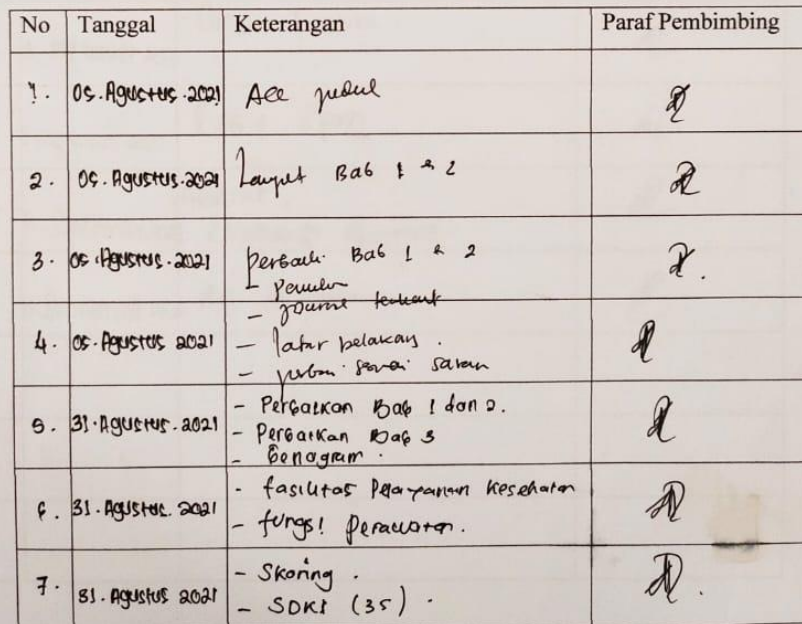 No Tanggal Keterangan Paraf Pembimbing
1. 05. Agustus. 2021 Acc judul
2. 05. Agustus. 2021 Lanjut Bab 1 & 2
3. 05. Agustus. 2021 Perbaiki Bab 1 & 2
- Penulisan
- journal terkait
4. 05. Agustus 2021 - latar belakang.
- sesuai saran
5. 31. Agustus. 2021 - Perbaikan Bab 1 dan 2.
- Perbaikan Bab 3
- Genogram.
6. 31. Agustus. 2021 - fasilitas Pelayanan Kesehatan
- fungsi Perawatan.
7. 31. Agustus 2021 - Skoring.
- SDKI (35).